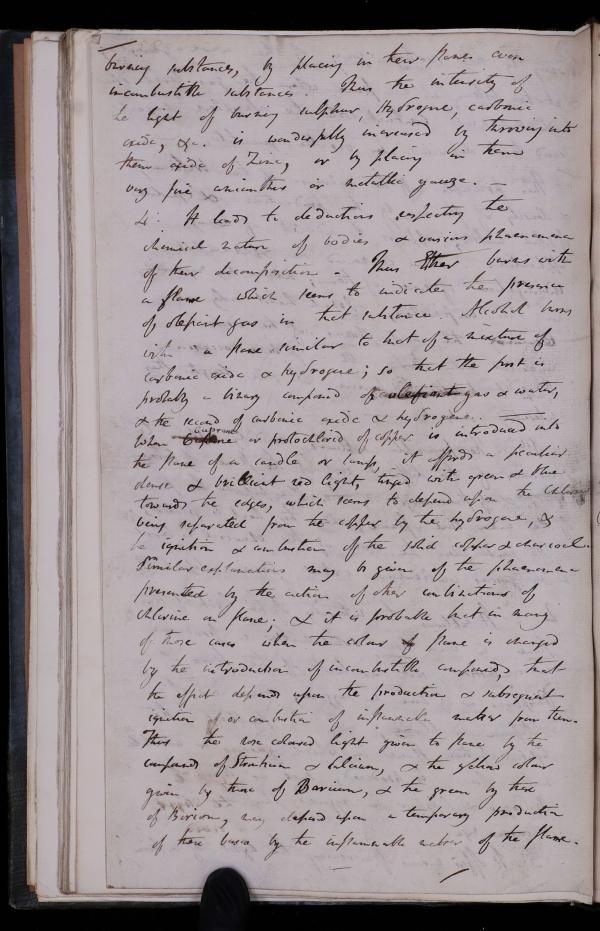 burning substances, by placing in their flames even
incombustible substances Thus the intensity of
the light of burning sulphur, Hydrogene, carbonic
oxide, &c. is wonderfully increased by throwing into
them oxide of Zinc, or by placing in them
very fine amianthus or metallic gauze. —
4: It leads to deductions respecting the
chemical nature of bodies & various phaenomena
of their decomposition - Thus Ether burns with
a flame which seems to indicate the presence
of olefiant gas in that substance. Alcohol burns
with a flame similar to that of a mixture of
carbonic oxide & hydrogene; so that the first is
probably a binary compound of olefiant gas & water,
& the second of carbonic oxide & hydrogene.
When cuprane or protochlorid of copper is introduced into
the flame of a candle or lamp, it affords a peculiar
dense & brilliant red light, tinged with green & blue
towards the edges, which seems to depend upon the chlorine
being separated from the copper by the hydrogene, &
the ignition & combustion of the solid copper & charcoal.
Similar explanations may be given of the phaenomena
presented by the action of other combinations of
chlorine on flame; & it is probable that in many
of those cases when the colour of flame is changed
by the introduction of incombustible compounds, that
the effect depends upon the production & subsequent
ignition or combustion of inflammable matter from them.
Thus the rose coloured light given to flame by the
compounds of Strontium & Calcium, & the yellow colour
given by those of Barium, & the green by those
of Boron, may depend upon a temporary production
of these bases by the inflammable matter of the flame.